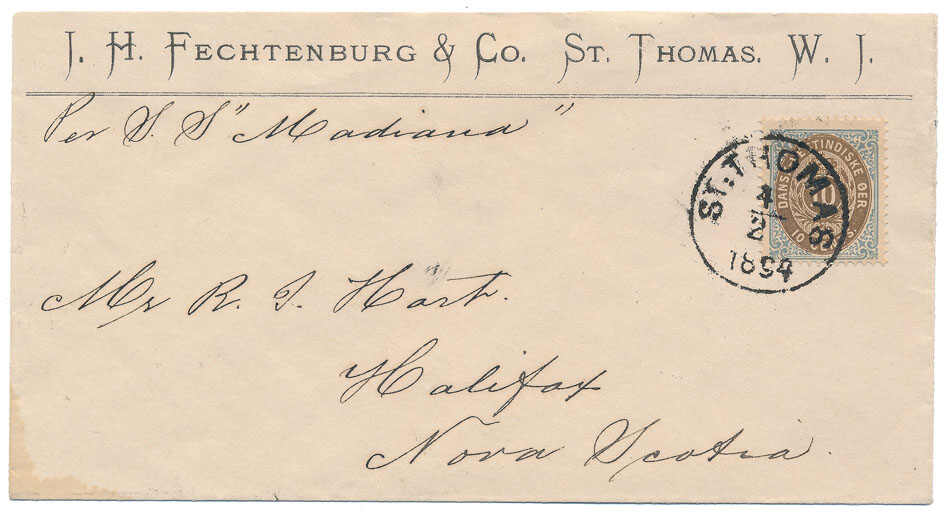 J. H. FECHTENBURG & CO. ST. THOMAS. W. J.
Per S. S "Madiana"
ST: THOMAS
4
2
1894
10
10
Mr R. I. Hart.
Halifax
Nova Scotia.